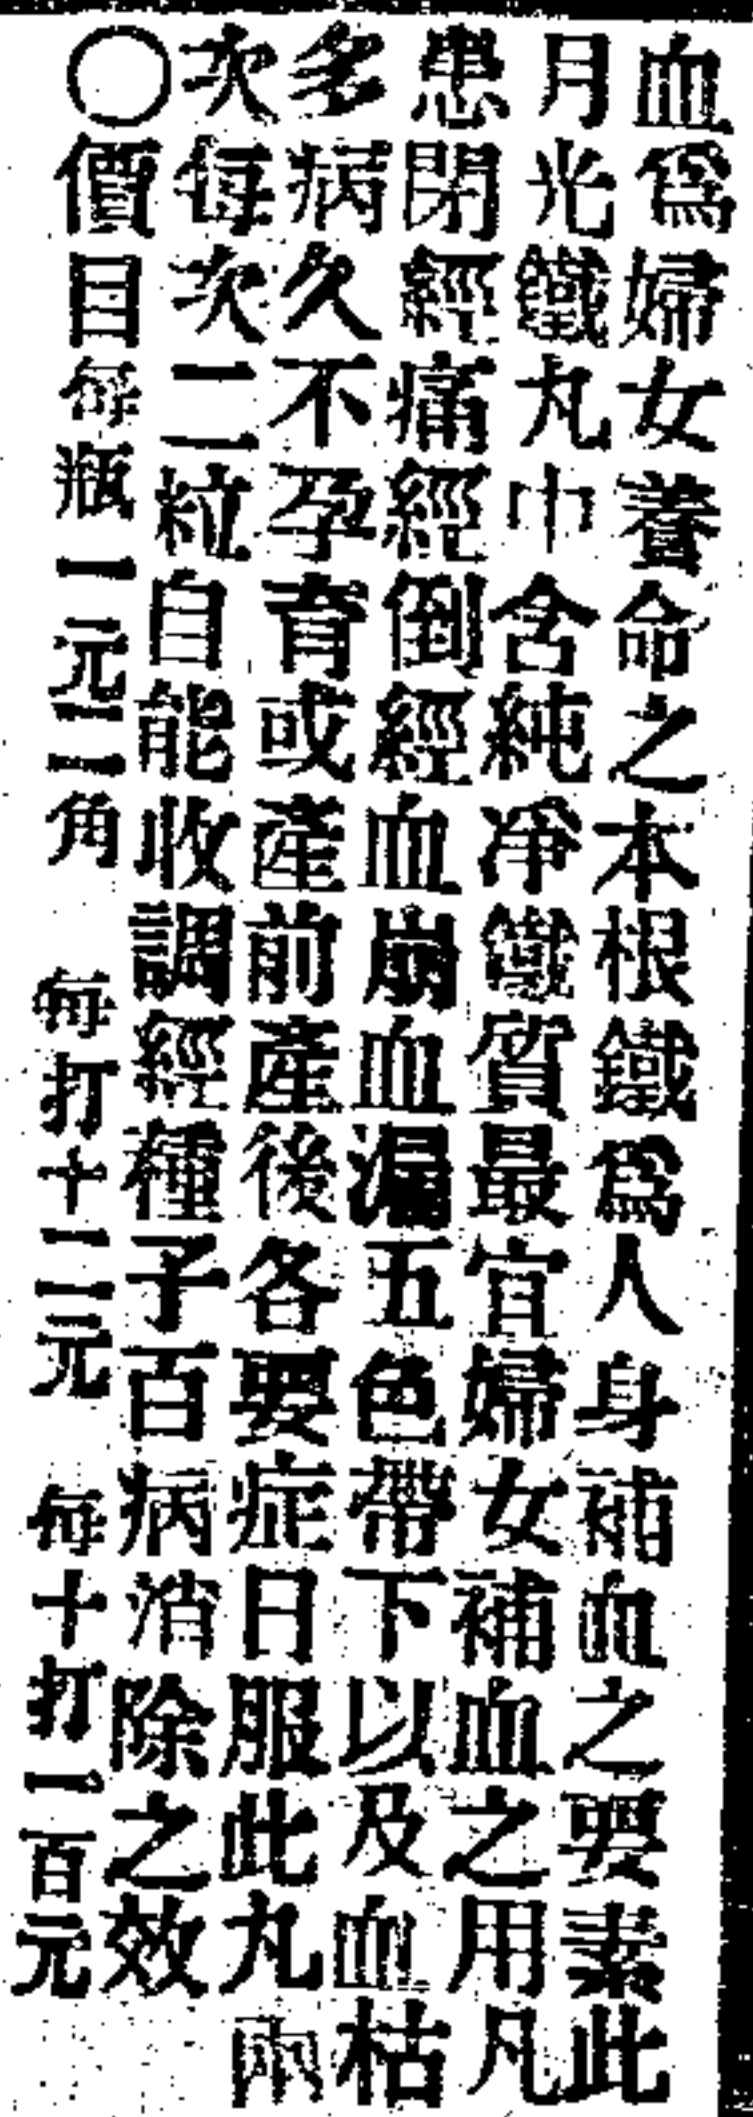 血爲婦女養命之本根鐵爲人身補血之要素此
月光鐵丸中含純凈鐵質最宜婦女補血之用凡
患閉經痛經倒經血崩血漏五色帶下以及血枯
多病久不孕育或產前產後各要症日服此丸兩
次每次二粒自能收調經種子百病消除之效
○價目每瓶一元二角 每打十二元 每十打一百元